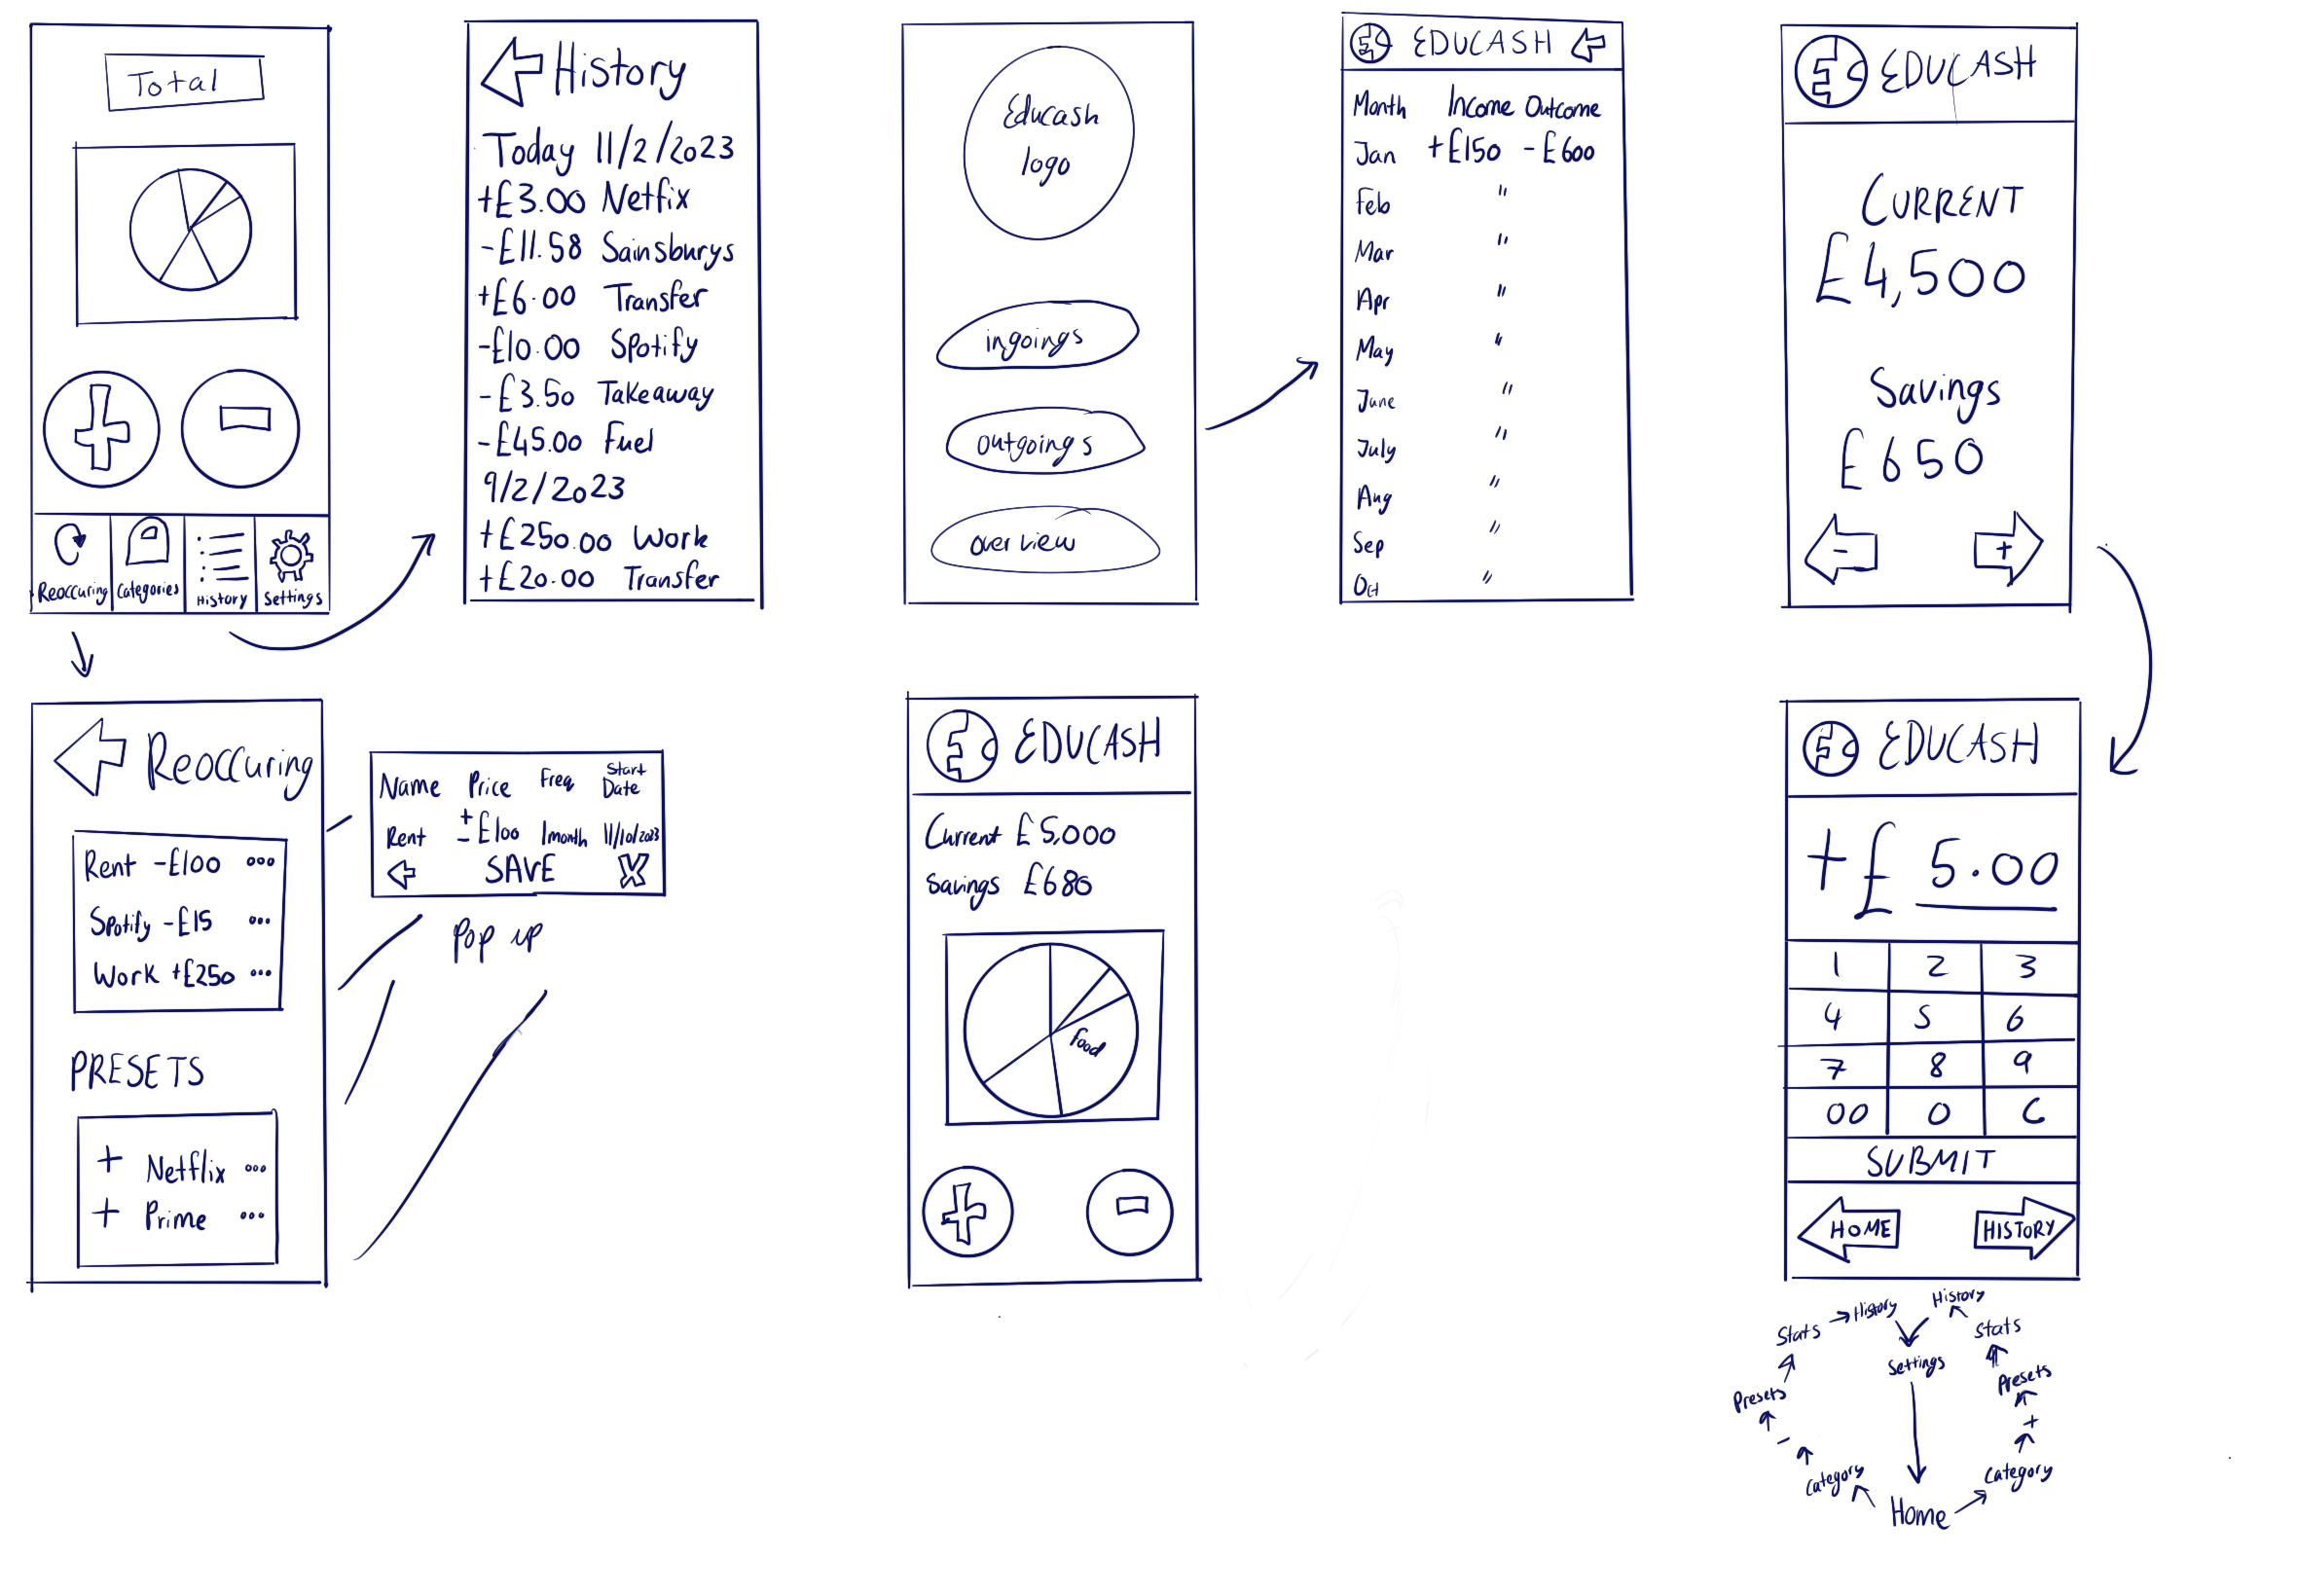 Total
Reoccuring Categories History Settings
History
Today 11/2/2023
+£3.00 Netfix
-£11.58 Sainsburys
+£6.00 Transfer
-£10.00 Spotify
-£3.50 Takeaway
-£45.00 Fuel
9/2/2023
+£250.00 Work
+£20.00 Transfer
Educash
logo
ingoings
outgoings
overview
EDUCASH
Month Income Outcome
Jan +£150 -£600
Feb "
Mar "
Apr "
May "
June "
July "
Aug "
Sep "
Oct "
£ EDUCASH
CURRENT
£4,500
Savings
£650
- +
Reoccuring
Rent -£100 ...
Spotify -£15 ...
Work +£250 ...
PRESETS
+ Netflix ...
+ Prime ...
Name Price Freq Start Date
Rent ± £100 1month 11/10/2023
SAVE X
Pop up
£ EDUCASH
Current £5,000
Savings £680
Food
£ EDUCASH
+£ 5.00
1 2 3
4 5 6
7 8 9
00 0 C
SUBMIT
HOME HISTORY
History History
Stats Stats
Settings
Presets Presets
- +
Category Category
Home